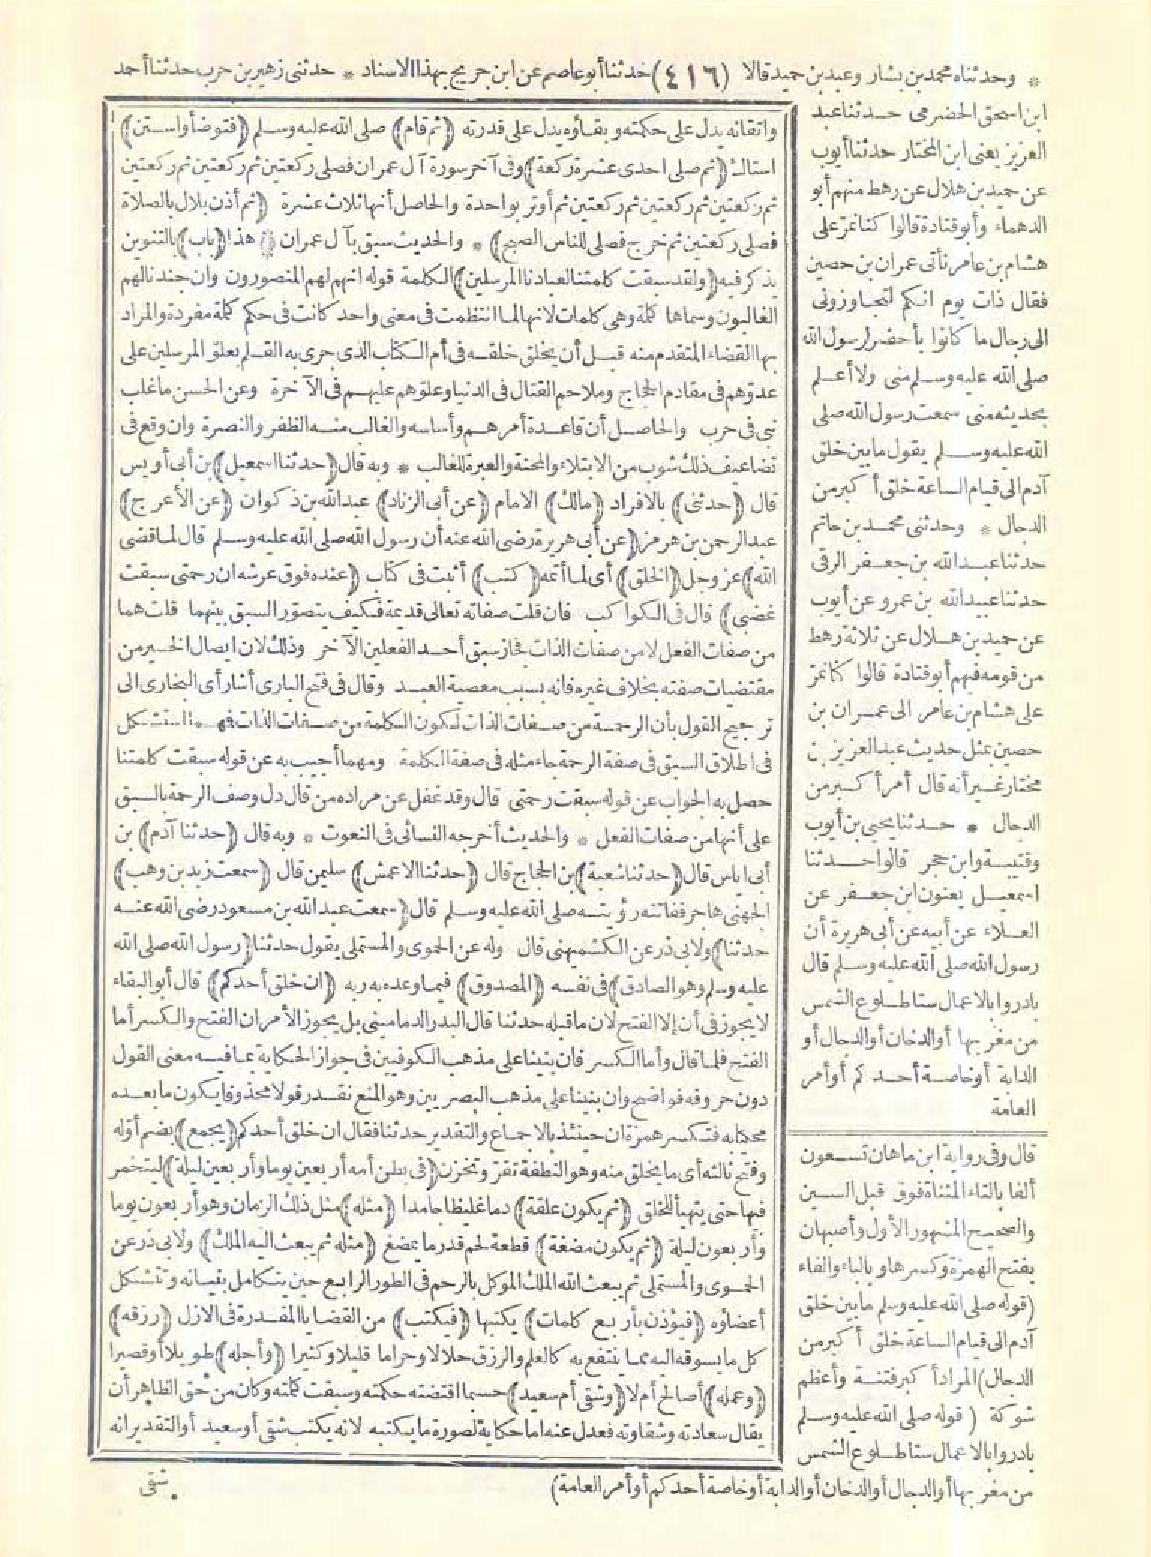 * وحدثناه محمد بن بشار وعبد بن حميد قالا (٤١٦) حدثنا أبو عاصم عن ابن جريج بهذا الاسناد * حدثنى زهير بن حرب حدثنا أحمد
ابن اسحق الحضرمى حدثنا عبد
العزيز يعنى ابن المختار حدثنا أيوب
عن حميد بن هلال عن رهط منهم أبو
الدهماء وأبو قتادة قالوا كنا نمر على
هشام بن عامر نأتى عمران بن حصين
فقال ذات يوم انكم لتجاوزونى
الى رجال ما كانوا بأحضر لرسول الله
صلى الله عليه وسلم منى ولا أعلم
بحديثه منى سمعت رسول الله صلى
الله عليه وسلم يقول ما بين خلق
آدم الى قيام الساعة خلق أكبر من
الدجال * وحدثنى محمد بن حاتم
حدثنا عبد الله بن جعفر الرقى
حدثنا عبيد الله بن عمرو عن أيوب
عن حميد بن هلال عن ثلاثة رهط
من قومه فيهم أبو قتادة قالوا كنا نمر
على هشام بن عامر الى عمران بن
حصين بمثل حديث عبد العزيز بن
مختار غير أنه قال أمر أكبر من
الدجال * حدثنا يحيى بن أيوب
وقتيبة وابن حجر قالوا حدثنا
اسمعيل يعنون ابن جعفر عن
العلاء عن أبيه عن أبى هريرة أن
رسول الله صلى الله عليه وسلم قال
بادروا بالاعمال ستا طلوع الشمس
من مغربها أو الدخان أو الدجال أو
الدابة أو خاصة أحدكم أو أمر
العامة
قال وفى رواية ابن ماهان تسعون
ألفا بالتاء المثناة فوق قبل السين
والصحيح المشهور الأول وأصبهان
بفتح الهمزة وكسرها وبالباء والفاء
(قوله صلى الله عليه وسلم ما بين خلق
آدم الى قيام الساعة خلق أكبر من
الدجال) المراد أكبر فتنة وأعظم
شوكة (قوله صلى الله عليه وسلم
بادروا بالاعمال ستا طلوع الشمس
من مغربها أو الدجال أو الدخان أو الدابة أو خاصة أحدكم أو أمر العامة)
واتقانه يدل على حكمته وبقاؤه يدل على قدرته (ثم قام) صلى الله عليه وسلم (فتوضأ واستن)
استاك (ثم صلى احدى عشرة ركعة) وفى آخر سورة آل عمران فصلى ركعتين ثم ركعتين ثم ركعتين
ثم ركعتين ثم ركعتين ثم ركعتين ثم أوتر بواحدة والحاصل أنها ثلاث عشرة (ثم أذن بلال بالصلاة
فصلى ركعتين ثم خرج فصلى للناس الصبح) * والحديث سبق بآل عمران هذا (باب) بالتنوين
يذكر فيه (ولقد سبقت كلمتنا لعبادنا المرسلين) الكلمة قوله انهم لهم المنصورون وان جندنا لهم
الغالبون وسماها كلمة وهى كلمات لانها لما انتظمت فى معنى واحد كانت فى حكم كلمة مفردة والمراد
بها القضاء المتقدم منه قبل أن يخلق خلقه فى أم الكتاب الذى جرى به القلم بعلو المرسلين على
عدوهم فى مقادم الحجاج وملاحم القتال فى الدنيا وعلوهم عليهم فى الآخرة وعن الحسن ما غلب
نبى فى حرب والحاصل أن قاعدة أمرهم وأساسه والغالب منه الظفر والنصرة وان وقع فى
تضاعيف ذلك شوب من الابتلاء والمحنة والعبرة للغالب * وبه قال (حدثنا اسمعيل) بن أبى أويس
قال (حدثنى) بالافراد (مالك) الامام (عن أبى الزناد) عبد الله بن ذكوان (عن الأعرج)
عبد الرحمن بن هرمز (عن أبى هريرة رضى الله عنه أن رسول الله صلى الله عليه وسلم قال لما قضى
الله) عز وجل (الخلق) أى لما أتمه (كتب) أثبت فى كتاب (عنده فوق عرشه ان رحمتى سبقت
غضبى) قال فى الكواكب فان قلت صفاته تعالى قديمة فكيف يتصور السبق بينهما قلت هما
من صفات الفعل لا من صفات الذات فجاز سبق أحد الفعلين الآخر وذلك لان ايصال الخير من
مقتضيات صفته بخلاف غيره فانه بسبب معصية العبد وقال فى فتح البارى أشار أى البخارى الى
ترجيح القول بأن الرحمة من صفات الذات لكون الكلمة من صفات الذات فهما استشكل
فى اطلاق السبق فى صفة الرحمة جاء مثله فى صفة الكلمة ومهما أجيب به عن قوله سبقت كلمتنا
حصل به الجواب عن قوله سبقت رحمتى قال وقد غفل عن مراده من قال دل وصف الرحمة بالسبق
على أنها من صفات الفعل * والحديث أخرجه النسائى فى النعوت * وبه قال (حدثنا آدم) بن
أبى اياس قال (حدثنا شعبة) بن الحجاج قال (حدثنا الاعمش) سليمن قال (سمعت زيد بن وهب)
الجهنى هاجر ففاتته رؤيته صلى الله عليه وسلم قال (سمعت عبد الله بن مسعود رضى الله عنه
حدثنا) ولابى ذر عن الكشميهنى قال وله عن الحموى والمستملى يقول حدثنا (رسول الله صلى الله
عليه وسلم وهو الصادق) فى نفسه (المصدوق) فيما وعده به ربه (ان خلق أحدكم) قال أبو البقاء
لا يجوز فى أن إلا الفتح لان ما قبله حدثنا قال البدر الدمامينى بل يجوز الأمران الفتح والكسر أما
الفتح فلما قال وأما الكسر فان بنينا على مذهب الكوفيين فى جواز الحكاية بما فيه معنى القول
دون حروفه فواضح وان بنينا على مذهب البصريين وهو المنع نقدر قولا محذوفا يكون ما بعده
محكيا به فتكسر همزة ان حينئذ بالاجماع والتقدير حدثنا فقال ان خلق أحدكم (يجمع) بضم أوله
وفتح ثالثه أى ما يخلق منه وهو النطفة تقر وتخزن (فى بطن أمه أربعين يوما وأربعين ليلة) ليتخمر
فيها حتى يتهيأ للخلق (ثم يكون علقة) دما غليظا جامدا (مثله) مثل ذلك الزمان وهو أربعون يوما
وأربعون ليلة (ثم يكون مضغة) قطعة لحم قدر ما يمضغ (مثله ثم يبعث اليه الملك) ولابى ذر عن
الحموى والمستملى ثم يبعث الله الملك الموكل بالرحم فى الطور الرابع حين يتكامل بنيانه وتتشكل
أعضاؤه (فيؤذن بأربع كلمات) يكتبها (فيكتب) من القضايا المقدرة فى الازل (رزقه)
كل ما يسوقه اليه مما ينتفع به كالعلم والرزق حلالا وحراما قليلا وكثيرا (وأجله) طويلا أو قصيرا
(وعمله) أصالح أم لا (وشقى أم سعيد) حسبما اقتضته حكمته وسبقت كلمته وكان من حق الظاهر أن
يقال سعادته وشقاوته فعدل عنه اما حكاية لصورة ما يكتبه لانه يكتب شقى أو سعيد أو التقدير انه
شقى